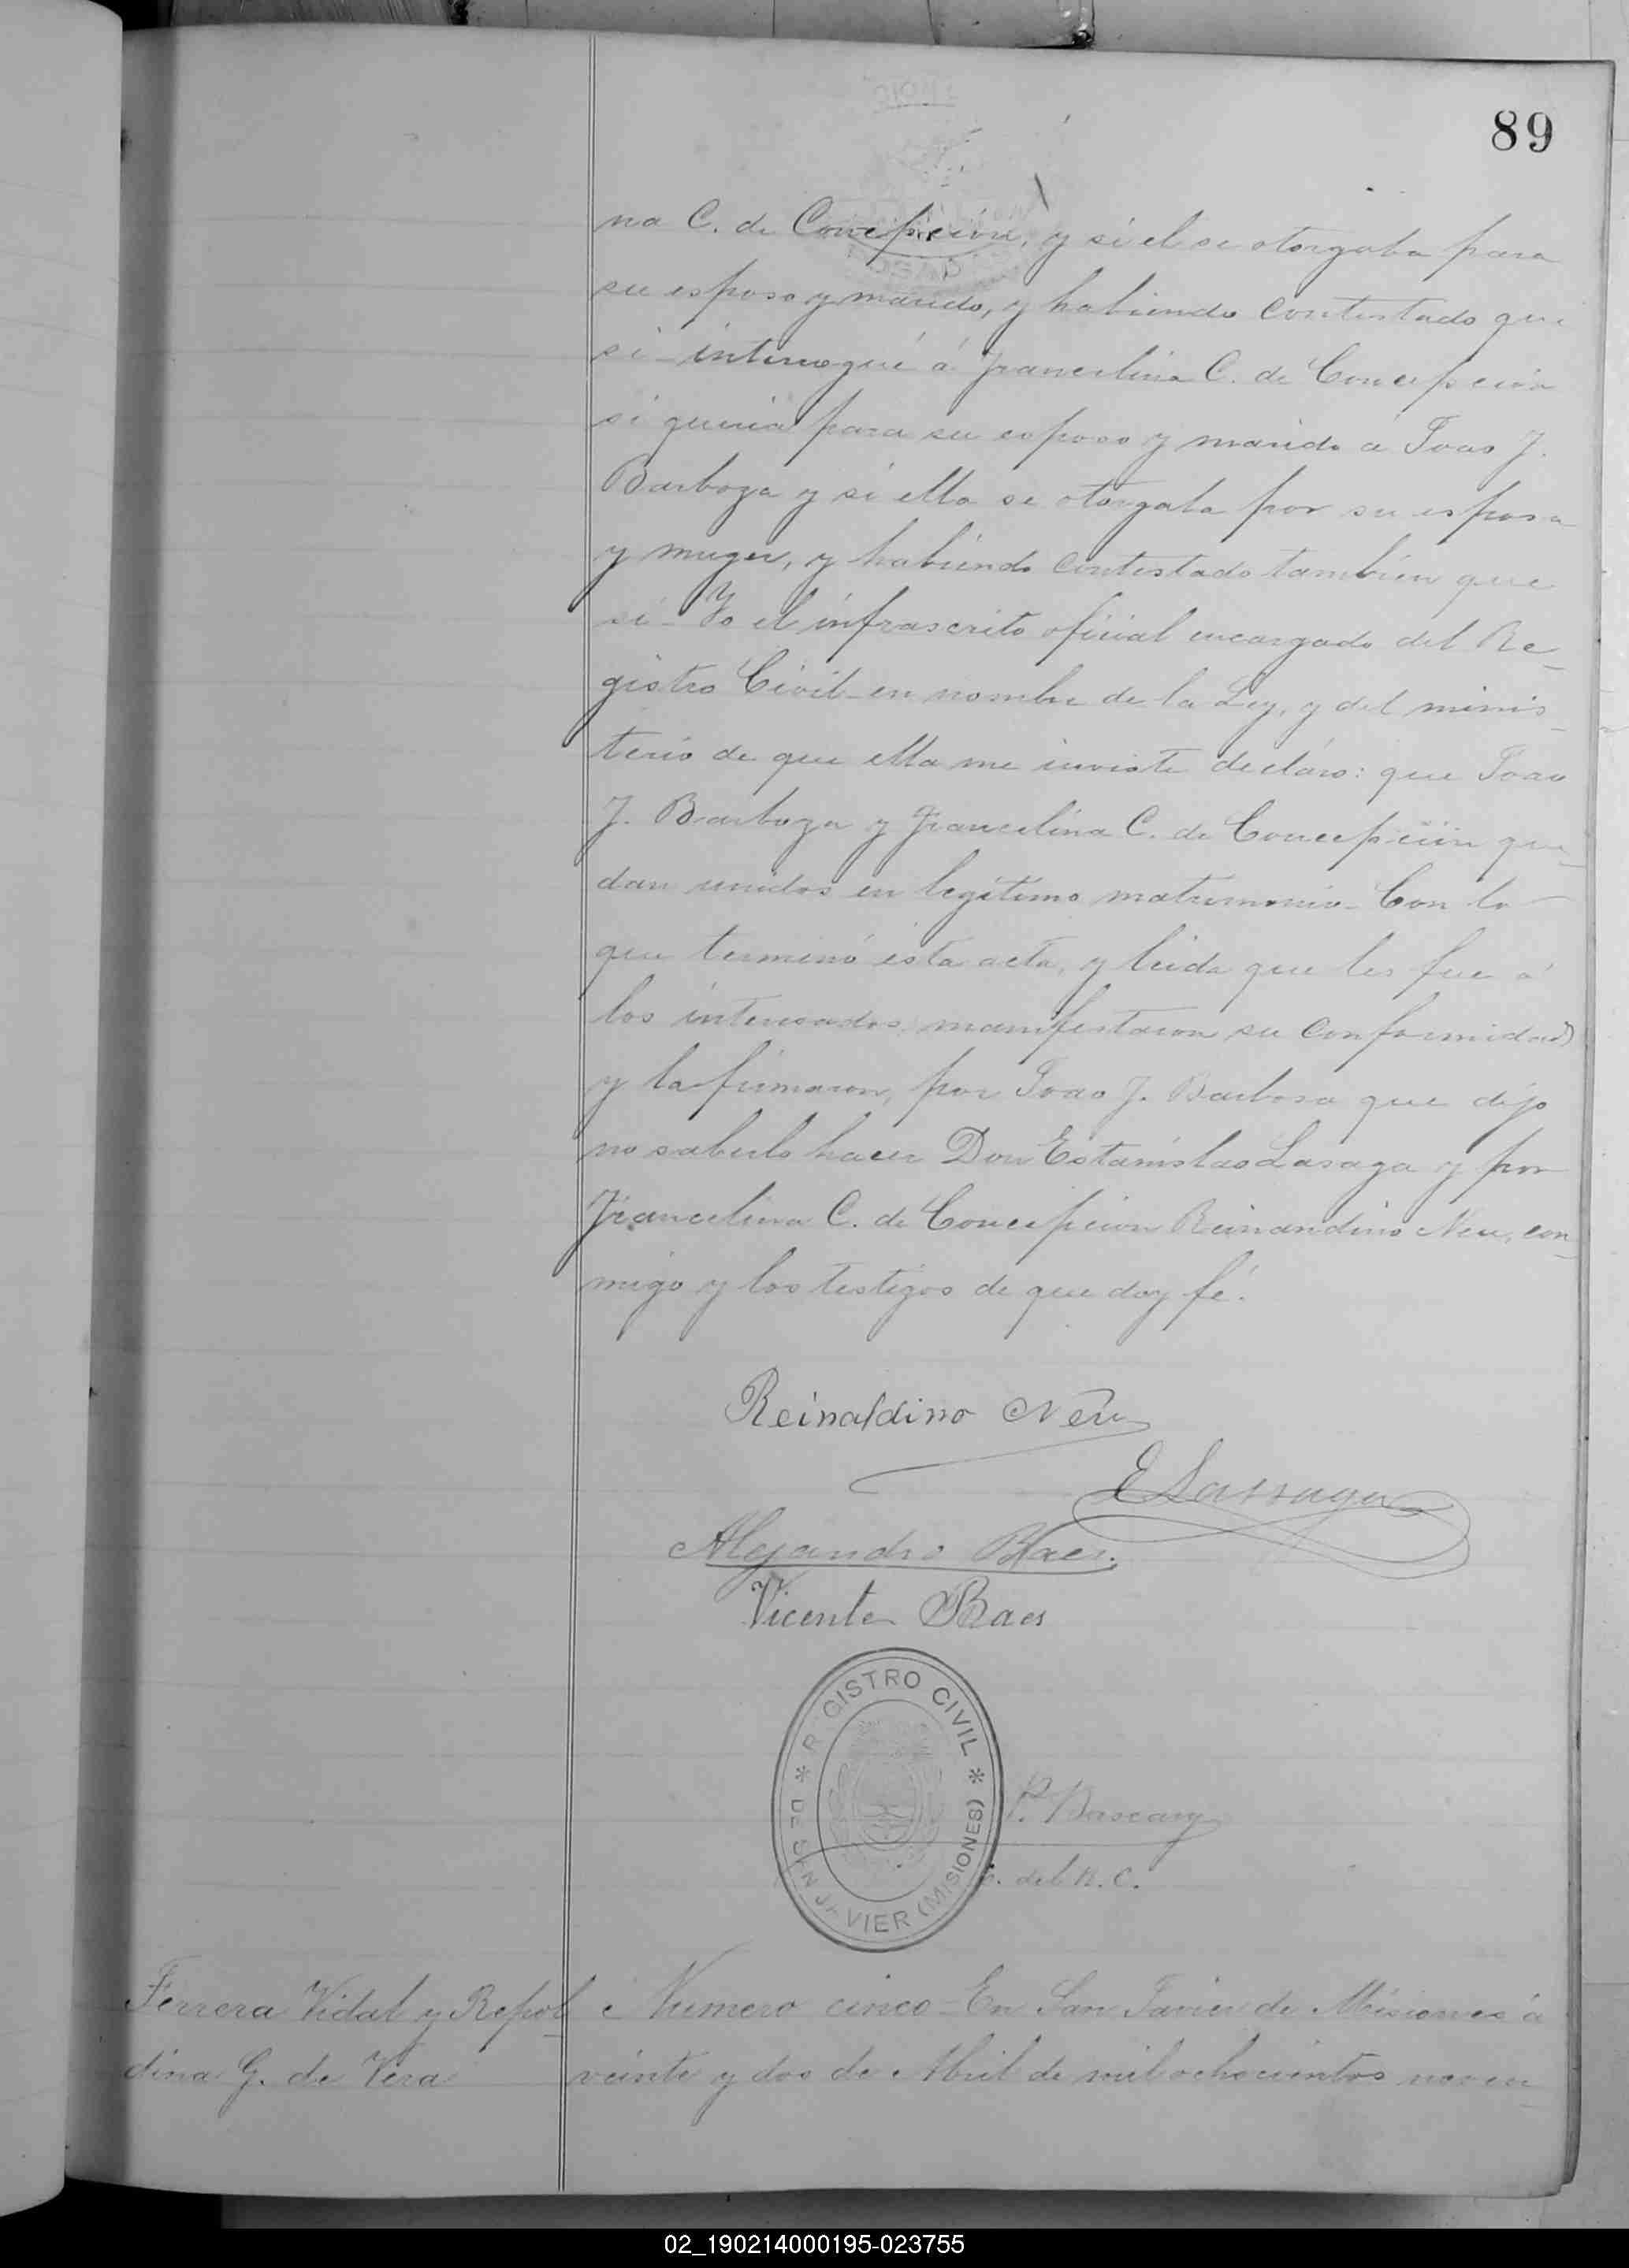 89
na C. de Concepción, y si el se otorgaba para
su esposo y marido, y habiendo contestado que
si - interrogué á Francelina C. de Concepcion
si queria para su esposo y marido á Joao J.
Barboza y si ella se otorgaba por su esposa
y muger, y habiendo contestado tambien que
si - Yo el infrascrito oficial encargado del Re_
gistro Civil - en nombre de la Ley, y del minis_
terio de que ella me inviste declaro: que Joao
J. Barboza y Francelina C. de Concepcion que_
dan unidos en legitimo matrimonio - Con lo
que terminó esta acta, y leida que les fue á
los interesados manifestaron su conformidad
y la firmaron, por Joao J. Barbosa que dijo
no saberlo hacer Don Estanislao Lasaga y por
Francelina C. de Concepcion Reinandino Neu, con_
migo y los testigos de que doy fé.
Reinaldino Neu
E Lassaga
Alejandro Baes.
Vicente Baes
R GISTRO CIVIL * DE SAN JAVIER (MISIONES) *
P. Bascary
del R. C.
Ferrera Vidal y Repol_
dina G. de Vera
Numero cinco - En San Javier de Misiones á
veinte y dos de Abril de mil ochocientos noven_
02_190214000195-023755